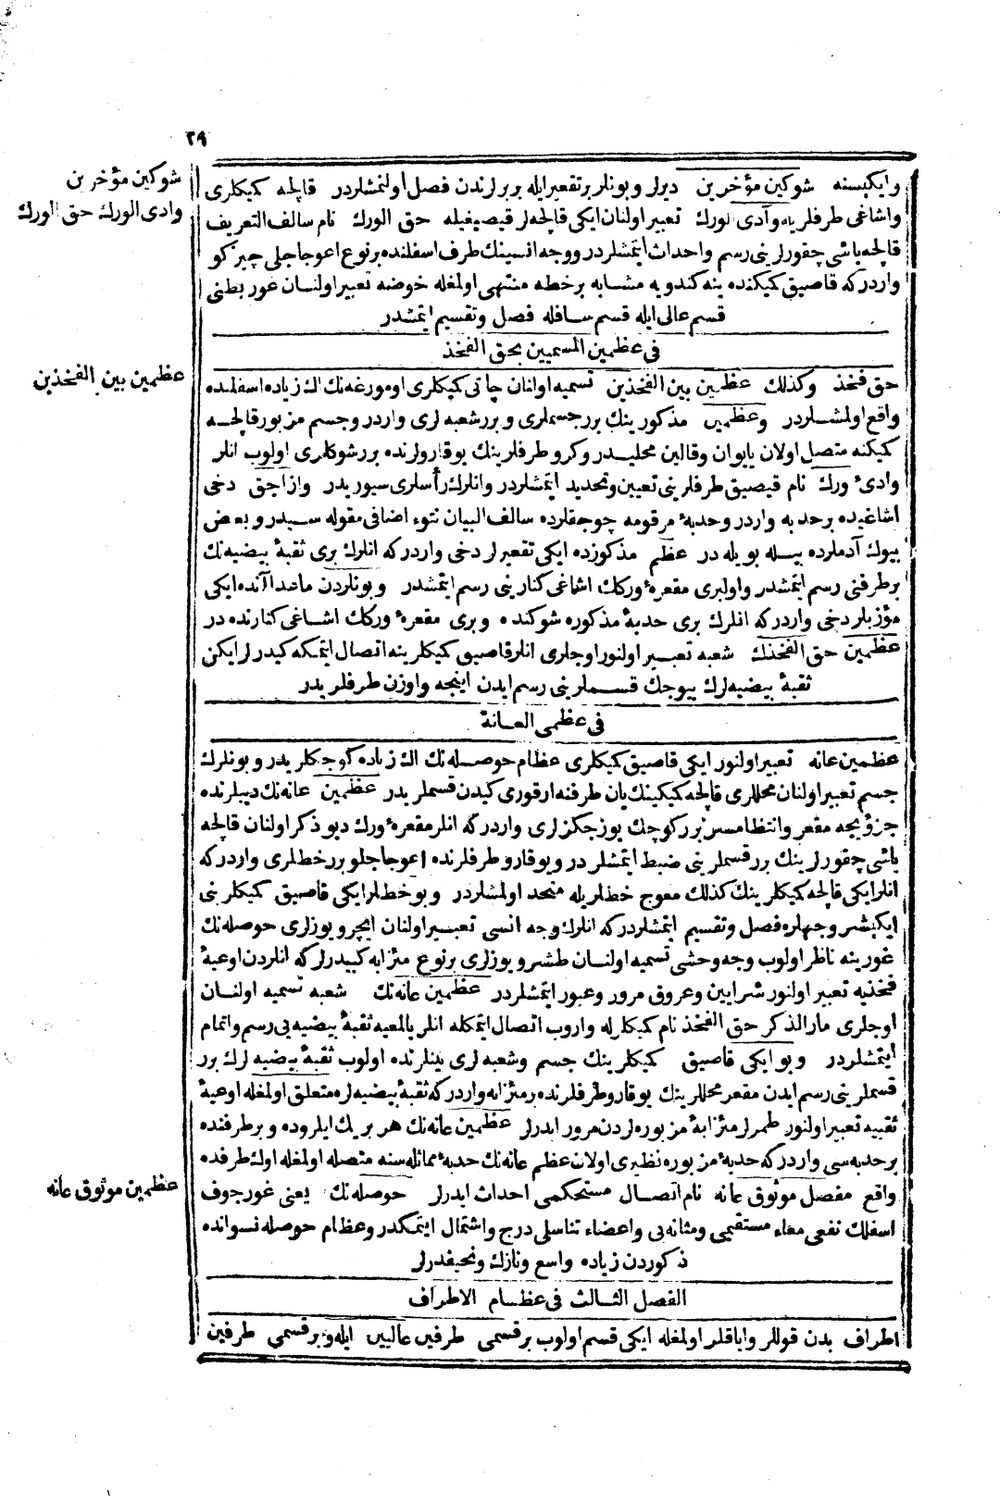 ٢٩
شوكين مؤخرين
وادى الورك حق الورك
وايكيسنه شوكين مؤخرين ديرلر وبونلر برتقعير ايله بربرلرندن فصل اولنمشلردر قالچه كميكلرى
واشاغى طرفلريله وآدى لورك تعبير اولنان ايكى قالچه لر قيصيغيله حق الورك نام سالف التعريف
قالچه باشى چقورلرينى رسم واحداث ايتمشلردر ووجه انسينك طرف اسفلنده برنوع اعوجاجلى چيزكو
واردركه قاصيق كميكنده ينه كندويه مشابه برخطه منتهى اولمغله حوضه تعبير اولنسان غور بطنى
قسم عالى ايله قسم سافله فصل وتقسيم ايتمشدر
فى عظمين المسميين بحق الفخذ
عظمين بين الفخذين
حق فخذ وكذلك عظمين بين الفخذين تسميه اولنان چاتى كميكلرى اومورغه نك الك زياده اسفلنده
واقع اولمشلردر وعظمين مذكورينك بررجسملرى وبررشعبه لرى واردر وجسم مزبور قالچه
كميكنه متصل اولان ياپوان وقالين محليدر وكرو طرفلرينك يوقارولرنده بررشوكلرى اولوب انلر
وادئ ورك نام قيصيق طرفلرينى تعيين وتحديد ايتمشلردر وانلرك رأسلرى سيوريدر وازاجق دخى
اشاغيده برحدبه واردر وحدبهٔ مرقومه چوجقلرده سالف البيان نتوء اضافى مقوله سيدر وبعض
بيوك آدملرده بيله بويله در عظم مذكورده ايكى تقعيرلر دخى واردركه انلرك برى ثقبهٔ بيضيه نك
برطرفنى رسم ايتمشدر واولبرى مقعرهٔ وركك اشاغى كنارينى رسم ايتمشدر وبونلردن ماعدا آنده ايكى
مؤزيلر دخى واردركه انلرك برى حدبهٔ مذكوره شوكنده وبرى مقعرهٔ وركك اشاغى كنارنده در
عظمين حق الفخذك شعبه تعبير اولنور اوجلرى انلر قاصيق كميكلرينه اتصال ايتمكه كيدرلر ايكن
ثقبهٔ بيضيه لرك بيوجك قسملرينى رسم ايدن اينجه واوزن طرفلريدر
فى عظمى العانة
عظمين عانه تعبير اولنور ايكى قاصيق كميكلرى عظام حوصله نك الك زياده كوچكلريدر وبونلرك
جسم تعبير اولنان محللرى قالچه كميكينك يان طرفنه ارقورى كيدن قسملريدر عظمين عانه نك ديبلرنده
جزؤيجه مقعر وانتظامسز بررکوچك يوزجكزلرى واردركه انلر مقعرهٔ ورك ديو ذكر اولنان قالچه
باشى چقورلرينك بررقسملرينى ضبط ايتمشلردر ويوقارو طرفلرنده اعوجاجلو بررخطلرى واردركه
انلر ايكى قالچه كميكلرينك كذلك معوج خطلريله متحد اولمشلردر وبوخطلر ايكى قاصيق كميكلرينى
ايكيشر وجهلره فصل وتقسيم ايتمشلردركه انلرك وجه انسى تعبير اولنان ايچرو يوزلرى حوصله نك
غورينه ناظر اولوب وجه وحشى تسميه اولنسان طشرو يوزلرى برنوع مئزابه كبيدرلركه انلردن اوعيهٔ
فخذيه تعبير اولنور شرايين وعروق مرور وعبور ايتمشلردر عظمين عانه نك شعبه تسميه اولنسان
اوجلرى مار الذكر حق الفخذ نام كميكلرله واروب اتصال ايتمكله انلر بالمعيه ثقبهٔ بيضيه يى رسم واتمام
ايتمشلردر وبو ايكى قاصيق كميكلرينك جسم وشعبه لرى بينلرنده اولوب ثقبهٔ بيضيه لرك برر
قسملرينى رسم ايدن مقعر محللرينك يوقارو طرفلرنده برمئزابه واردركه ثقبهٔ بيضيه لره متعلق اولمغله اوعيهٔ
ثقبيه تعبير اولنور طمرلر مئزابهٔ مزبوره لردن مرور ايدرلر عظمين عانه نك هر بريك ايلروده وبرطرفنده
برحدبه سى واردركه حدبهٔ مزبوره نظيرى اولان عظم عانه نك حدبهٔ مماثله سنه متصله اولمغله اولك طرفده
عظمين موثوق عانه
واقع مفصل موثوق عانه نام اتصال مستحكمى احداث ايدرلر حوصله نك يعنى غور جوف
اسفلك نفعى معاء مستقيمى ومثانه يى واعضاء تناسلى درج واشتمال ايتمكدر وعظام حوصله نسوانده
ذكوردن زياده واسع ونازك ونحيفدرلر
الفصل الثالث فى عظام الاطراف
اطراف بدن قوللر واياقلر اولمغله ايكى قسم اولوب برقسمى طرفين عاليين ايله وبرقسمى طرفين